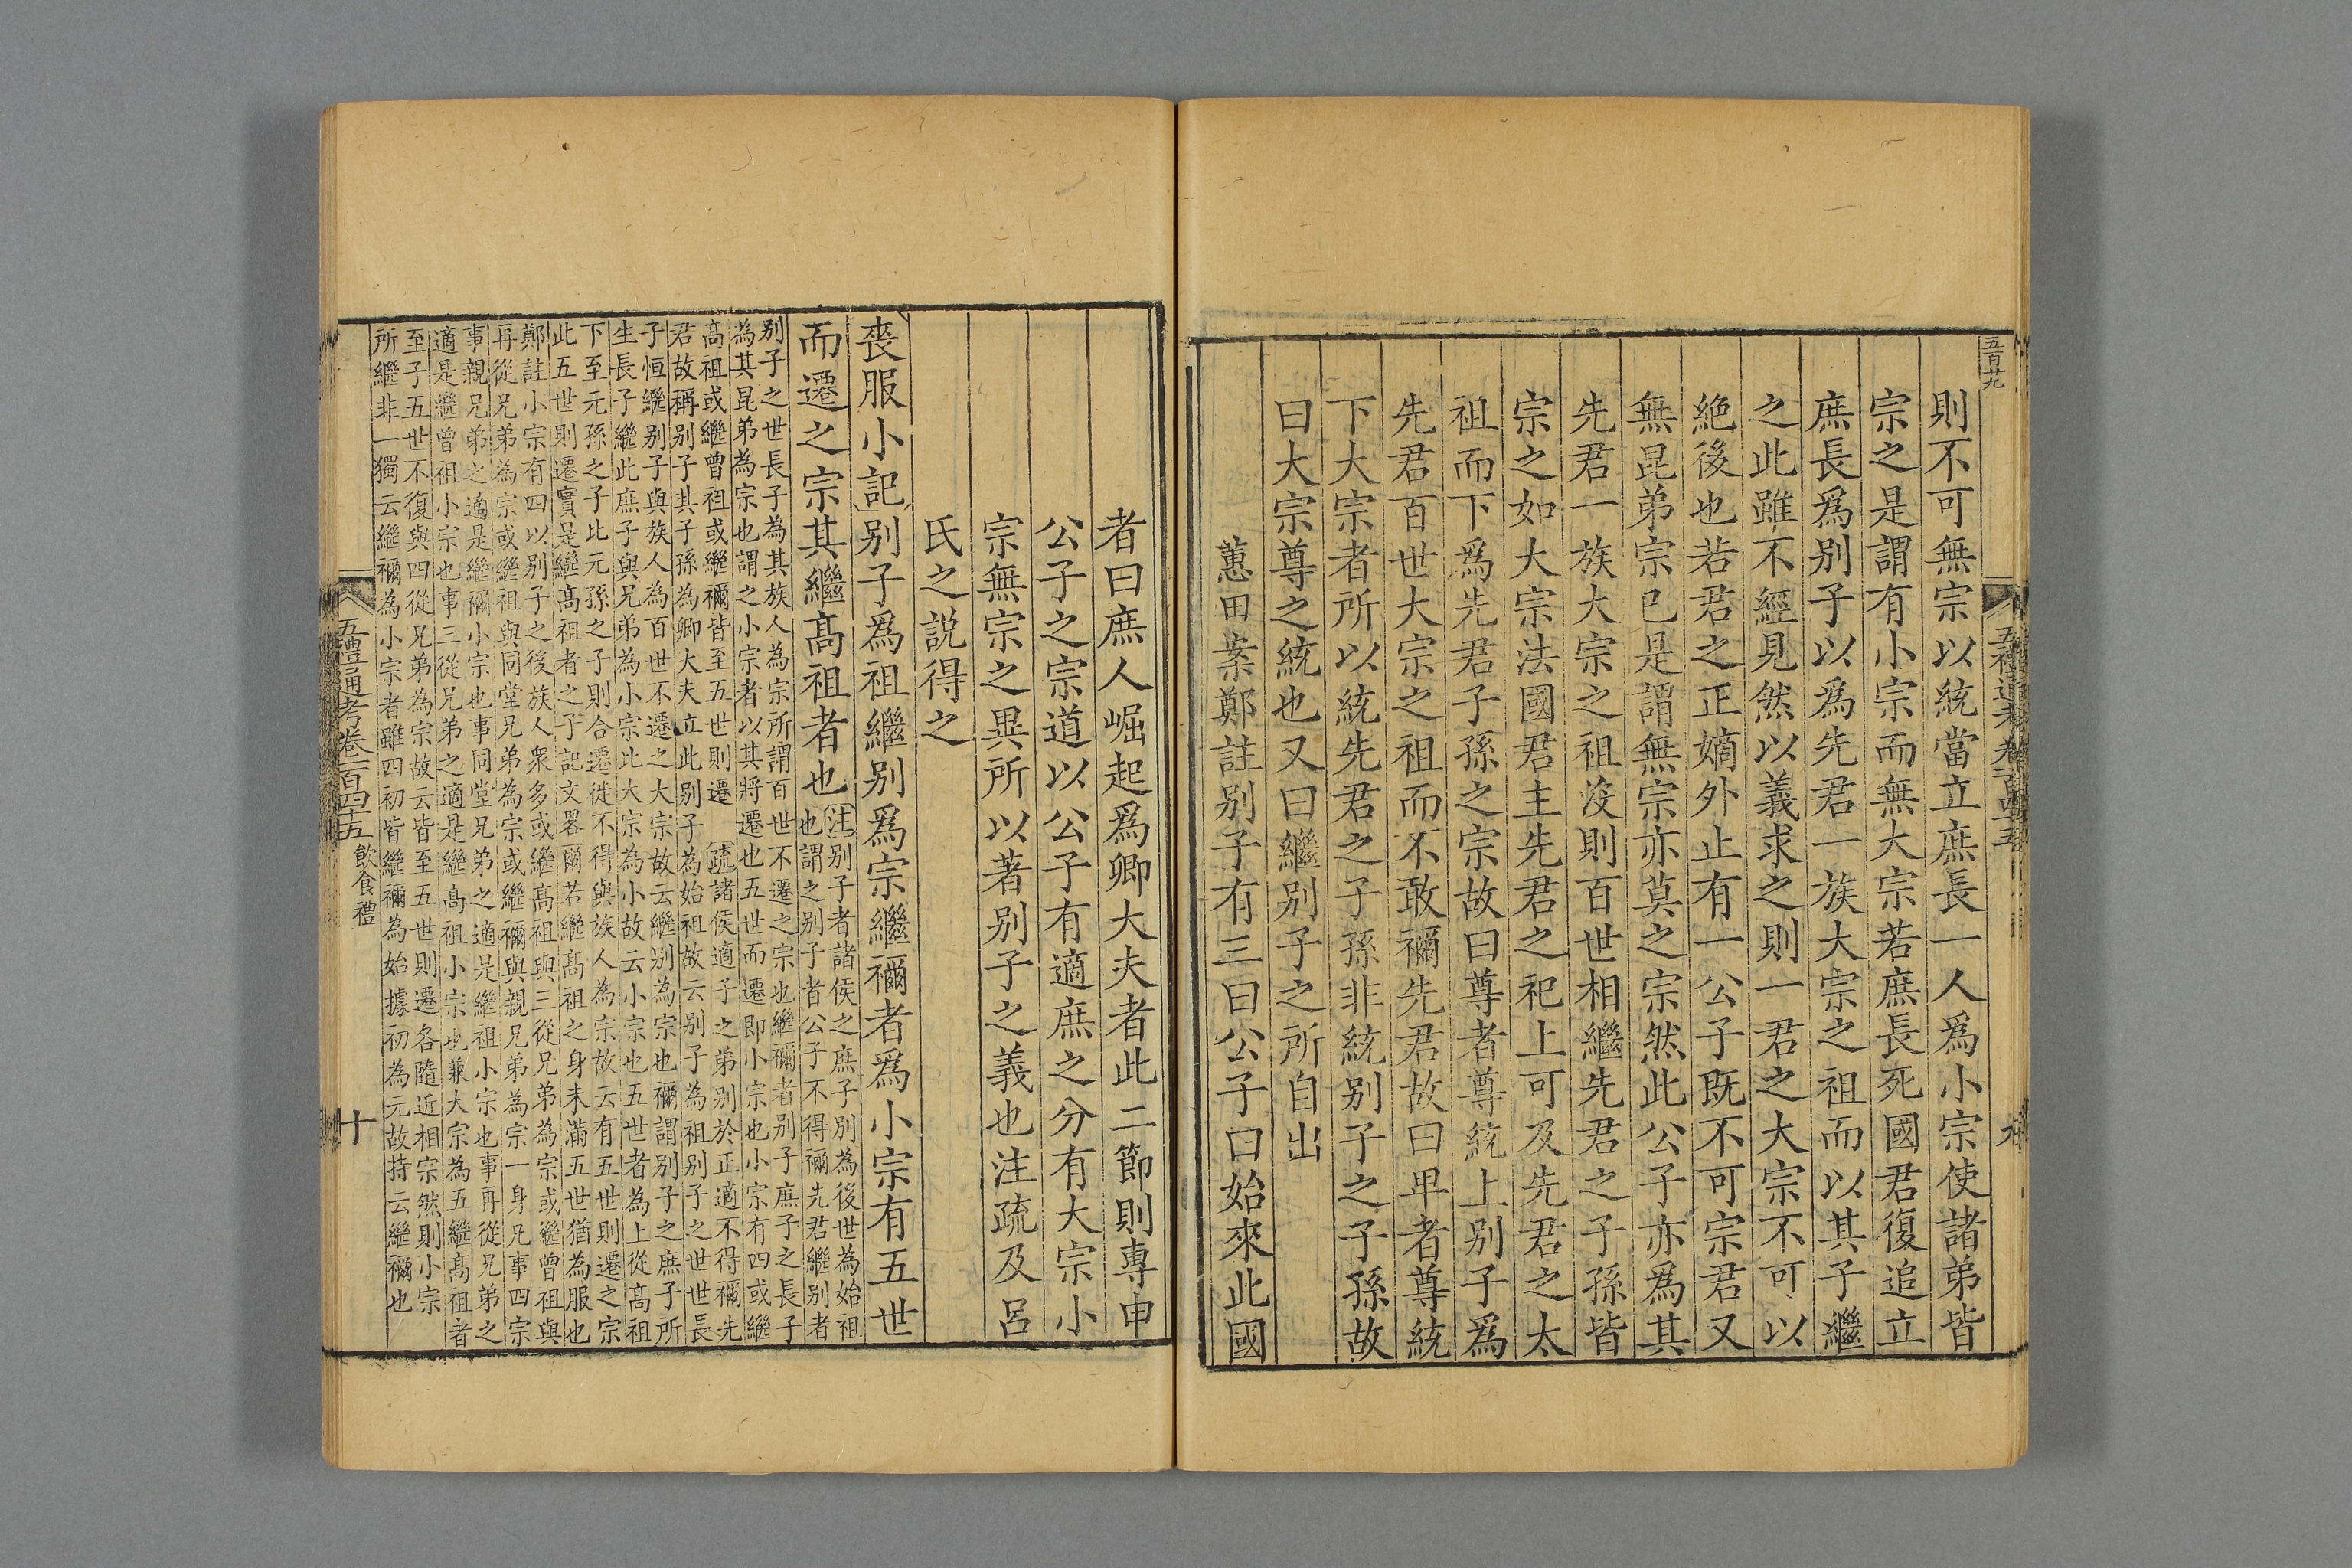 五百廿九
則不可無宗以統當立庶長一人爲小宗使諸弟皆
宗之是謂有小宗而無大宗若庶長死國君復追立
庶長爲别子以爲先君一族大宗之祖而以其子繼
之此雖不經見然以義求之則一君之大宗不可以
絶後也若君之正嫡外止有一公子既不可宗君又
無昆弟宗已是謂無宗亦莫之宗然此公子亦爲其
先君一族大宗之祖沒則百世相繼先君之子孫皆
宗之如大宗法國君主先君之祀上可及先君之太
祖而下爲先君子孫之宗故曰尊者尊統上别子爲
先君百世大宗之祖而不敢禰先君故曰卑者尊統
下大宗者所以統先君之子孫非統别子之子孫故
曰大宗尊之統也又曰繼别子之所自出
蕙田案鄭註别子有三曰公子曰始來此國
者曰庶人崛起爲卿大夫者此二節則專申
公子之宗道以公子有適庶之分有大宗小
宗無宗之異所以著别子之義也注疏及呂
氏之説得之
喪服小記别子爲祖繼别爲宗繼禰者爲小宗有五世
而遷之宗其繼髙祖者也
注别子者諸侯之庶子別為後世為始祖
也謂之别子者公子不得禰先君繼别者
别子之世長子為其族人為宗所謂百世不遷之宗也繼禰者别子庶子之長子
為其昆弟為宗也謂之小宗者以其將遷也五世而遷即小宗也小宗有四或繼
髙祖或繼曾祖或繼禰皆至五世則遷 疏諸侯適子之弟别於正適不得禰先
君故稱别子其子孫為卿大夫立此别子為始祖故云别子為祖别子之世世長
子恒繼别子與族人為百世不遷之大宗故云繼别為宗也禰謂别子之庶子所
生長子繼此庶子與兄弟為小宗此大宗為小故云小宗也五世者為上從髙祖
下至元孫之子比元孫之子則合遷徙不得與族人為宗故云有五世則遷之宗
此五世則遷實是繼髙祖者之子記文畧爾若繼髙祖之身未滿五世猶為服也
鄭註小宗有四以别子之後族人衆多或繼髙祖與三從兄弟為宗或繼曾祖與
再從兄弟為宗或繼祖與同堂兄弟為宗或繼禰與親兄弟為宗一身凡事四宗
事親兄弟之適是繼禰小宗也事同堂兄弟之適是繼祖小宗也事再從兄弟之
適是繼曾祖小宗也事三從兄弟之適是繼髙祖小宗也兼大宗為五繼髙祖者
至子五世不復與四從兄弟為宗故云皆至五世則遷各隨近相宗然則小宗
所繼非一獨云繼禰為小宗者雖四初皆繼禰為始據初為元故持云繼禰也
五禮通考卷一百四十五 飲食禮 十